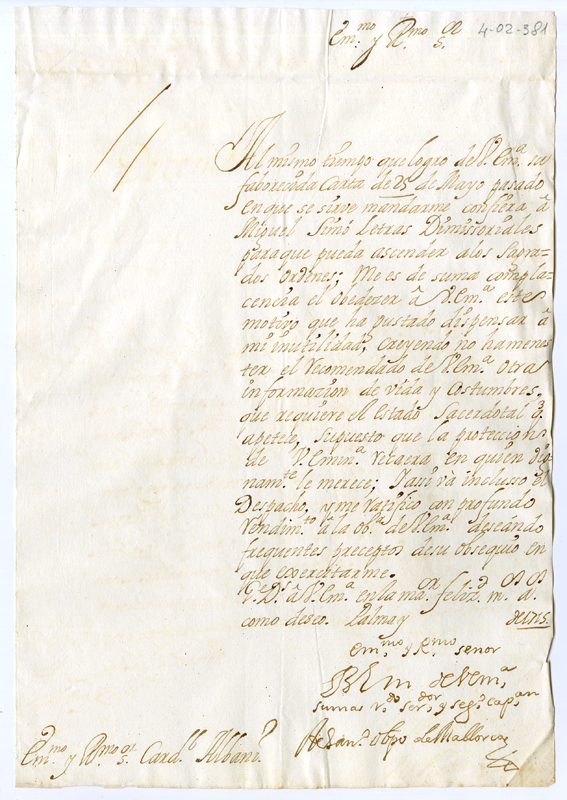 Em.mo y R.mo S.or
4-02-381
Al mismo tiempo que logro de V. Em.a su
faborecida Carta de 25 de Mayo pasado
en que se sirve mandarme confiera à
Miguel Simó Letras Dimisoriales
para que pueda ascender a los Sagra-
dos Ordenes; Me es de suma compla-
cencia el Obedezer à V. Em.a este
motivo que ha gustado dispensar à
mi inutilidad, creyendo no ha menes
ter el Recomendado de V. Em.a otra
informazion de vida y Costumbres,
que requiere el Estado Sacerdotal q.
apeteze, supuesto que la proteccion
de V. Emin.a recaera en quien dig-
nam.te le merece; Y asi va incluso el
Despacho, y me ratifico con profundo
rendim.to à la ob.a de V. Em.a deseando
frequentes preceptos de su obsequio en
que exercitarme.
à V. Em.a en la ma.or feliz.d m.s a.s
como deseo. Palma y de 1715.
Em.mo y R.mo señor
B L m de V Em.a
su mas r.do ser.dor y seg.o cap.an
obpo de Mallorca
Em.mo y R.mo S.or Card.l Albani